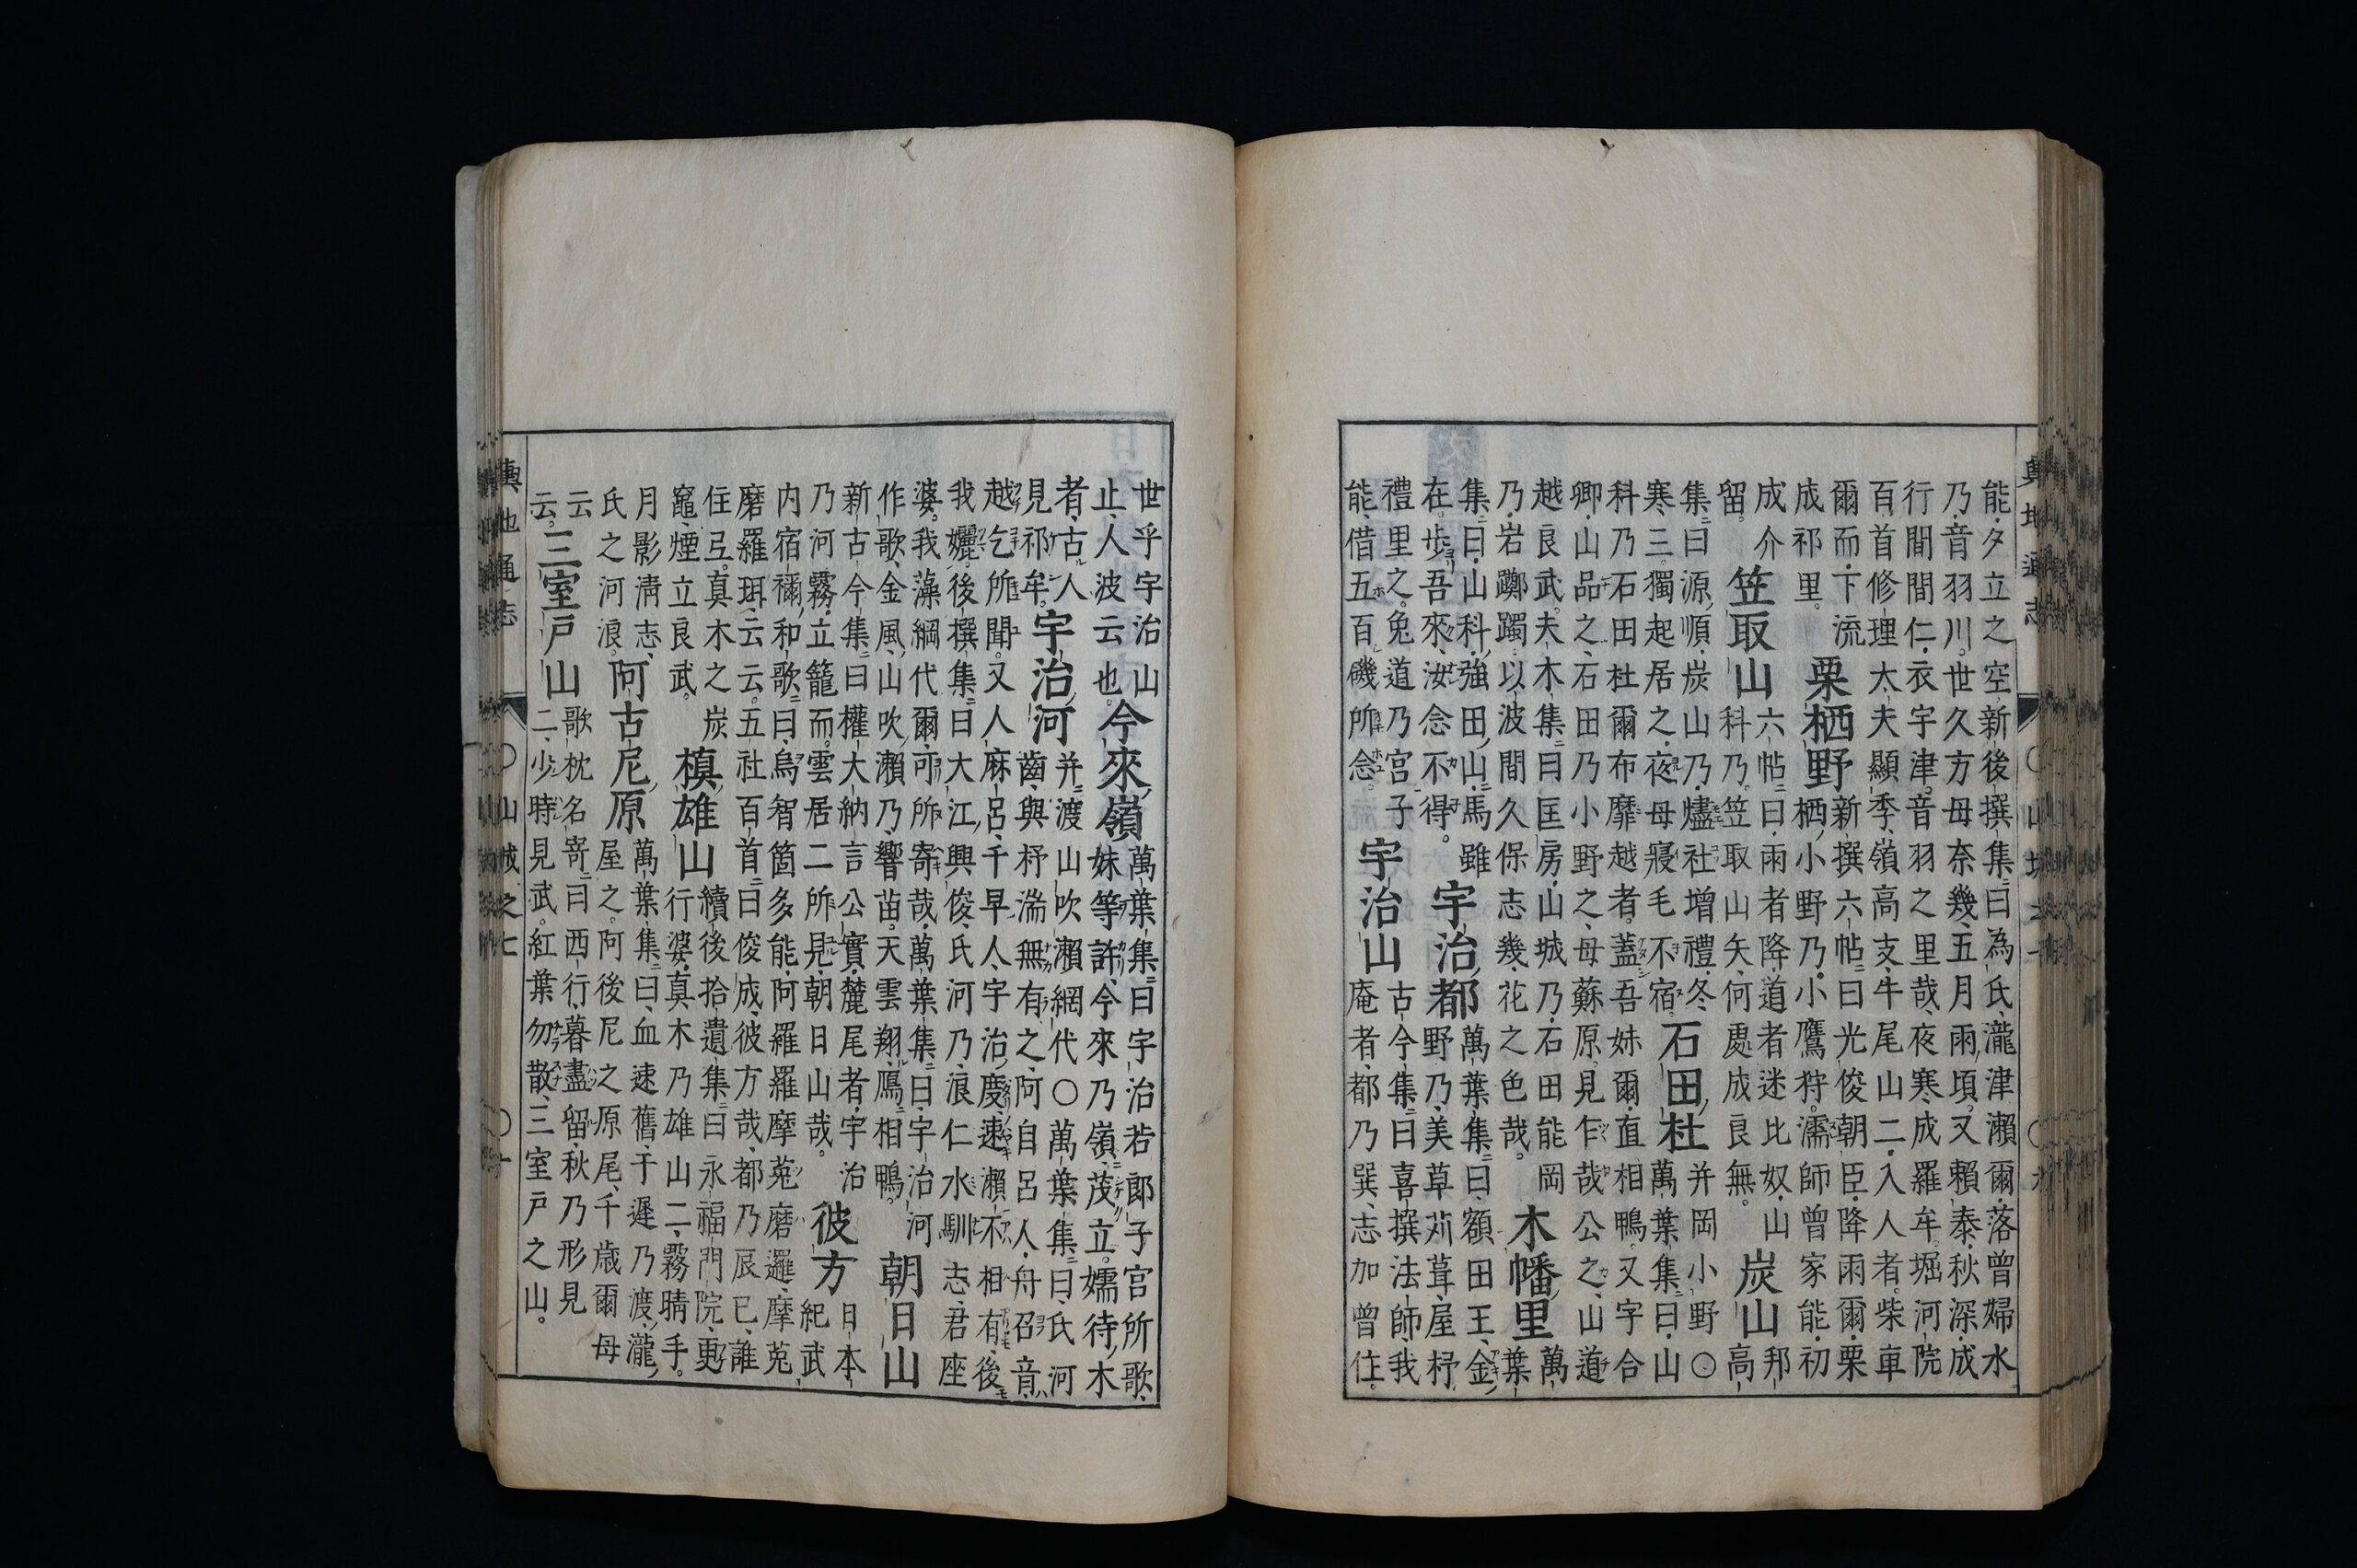 能夕立之空新後撰集曰為氏瀧津瀬爾落曾婦水
乃音羽川。世久方母奈幾五月雨頃。又頼泰秋深成
行間間仁衣宇津音羽之里哉夜寒成羅牟堀河院
百首修理大夫顯季嶺高支牛尾山二入人者柴車
爾而下流
成祁里。
栗栖野
新撰六帖曰光俊朝臣降雨爾栗
栖小野乃小鷹狩。濡師曾家能初
成介
留。
笠取山
六帖曰雨者降道者迷比奴山
科乃笠取山矢何處成良無。
炭山
邦
高
集曰源順炭山乃爐社增禮冬
寒三獨起居之夜母寢毛不宿
石田杜
并岡小野○
萬葉集曰山
科乃石田杜爾布靡越者蓋吾妹爾直相鴨又宇合
卿山品之石田乃小野之母蘇原見乍哉公之山道
越良武。夫木集曰匡房山城乃石田能岡
乃岩躑躅以波間久保志幾花之色哉。
木幡里
萬
葉
集曰山科強田山馬雖
在歩吾來汝念不得。
宇治都
萬葉集曰額田王金
野乃美草苅葺屋杼
禮里之。兔道乃宮子
能借五百磯所念。
宇治山
古今集曰喜撰法師我
庵者都乃巽志加曾住。
世乎宇治山
止人波云也。
今來嶺
萬葉集曰宇治若郎子宮所歌
妹等許今來乃嶺茂立。嬬待木
者古人
見祁牟。
宇治河
并渡山吹瀬網代○萬葉集曰氏河
齒與杼湍無有之阿自呂人舟召音
越乞所聞。又人麻呂千早人宇治慶速瀬不相有後
我孋。後撰集曰大江興俊氏河乃浪仁水馴志君座
婆。我藻綱代爾可所寄哉萬葉集曰宇治河
作歌金風山吹瀬乃響苗。天雲翔鴈相鴨。
朝日山
新古今集曰權大納言公實麓尾者宇治
乃河霧立籠而。雲居二所見朝日山哉。
彼方
日本
紀武
内宿禰和歌曰烏智箇多能阿羅羅摩菟磨邏摩菟
磨羅珥云云。五社百首曰俊成彼方哉都乃辰巳誰
住弖。真木之炭
竈煙立良武。
槙雄山
續後拾遺集曰永福門院更
行婆真木乃雄山二霧晴手。
月影清志
氏之河浪。
阿古尼原
萬葉集曰血速舊于遲乃渡瀧
屋之。阿後尼之原尾千歳爾母
云
云。
三室戸山
歌枕名寄曰西行暮盡留秋乃形見
二少時見武。紅葉勿散三室戸之山。
輿地通志
○山城之七
○十